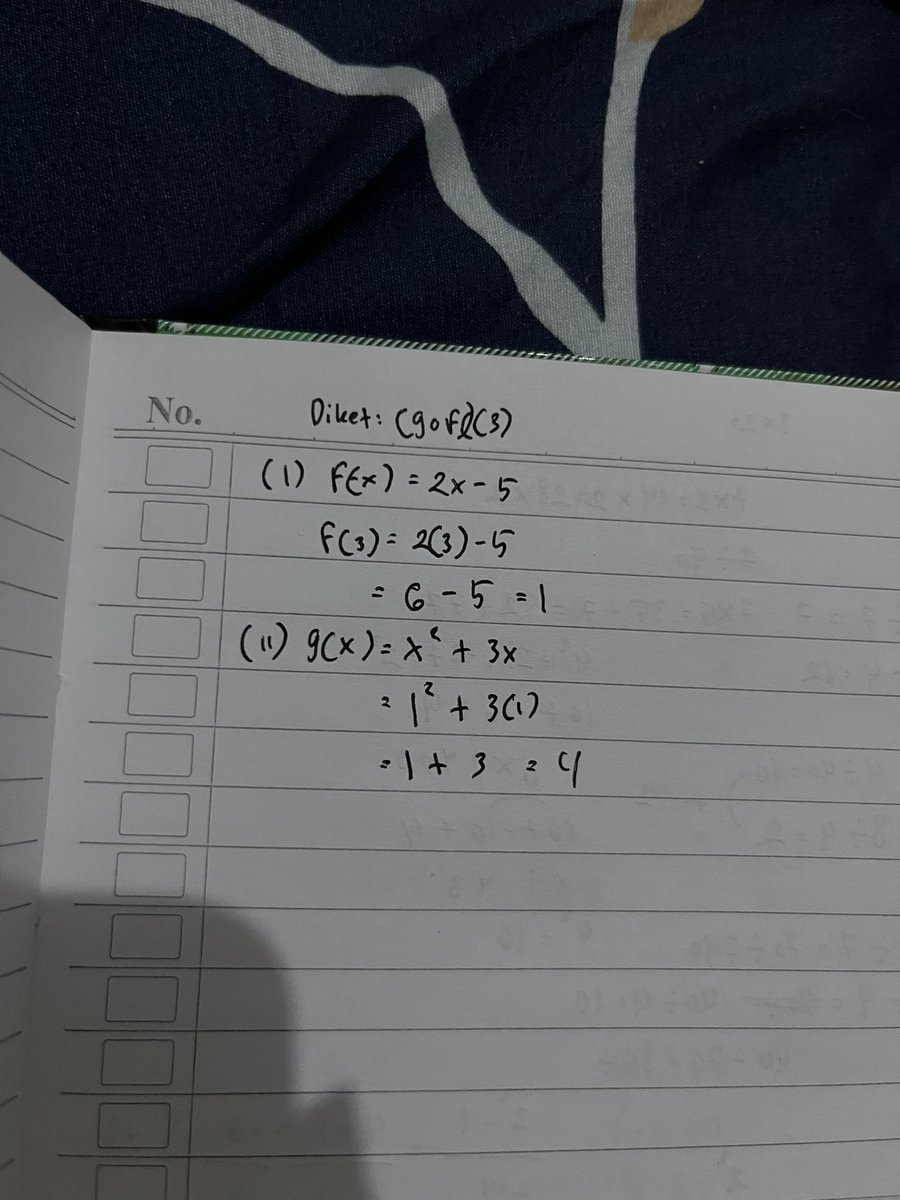 No.
Diket: (gof)(3)
(1) f(x) = 2x - 5
f(3) = 2(3) - 5
= 6 - 5 = 1
(11) g(x) = x² + 3x
= 1² + 3(1)
= 1 + 3 = 4